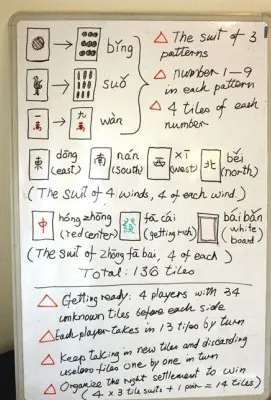 → bǐng
→ suǒ
一萬 → 九萬 wàn
△ The suit of 3
patterns
△ number 1-9
in each pattern
△ 4 tiles of each
number
東 dōng (east) 南 nán (south) 西 xī (west) 北 běi (north)
(The suit of 4 winds, 4 of each wind.)
中 hóng zhōng (red center) 發 fā cái (getting rich) bái bǎn (white board)
(The suit of zhōng fā bai, 4 of each)
Total: 136 tiles
△ Getting ready: 4 players with 34
unknown tiles before each side
△ Each player takes in 13 tiles by turn
△ Keep taking in new tiles and discarding
useless tiles one by one in turn
△ Organize the right settlement to win
(4 x 3 tile suits + 1 pair = 14 tiles)